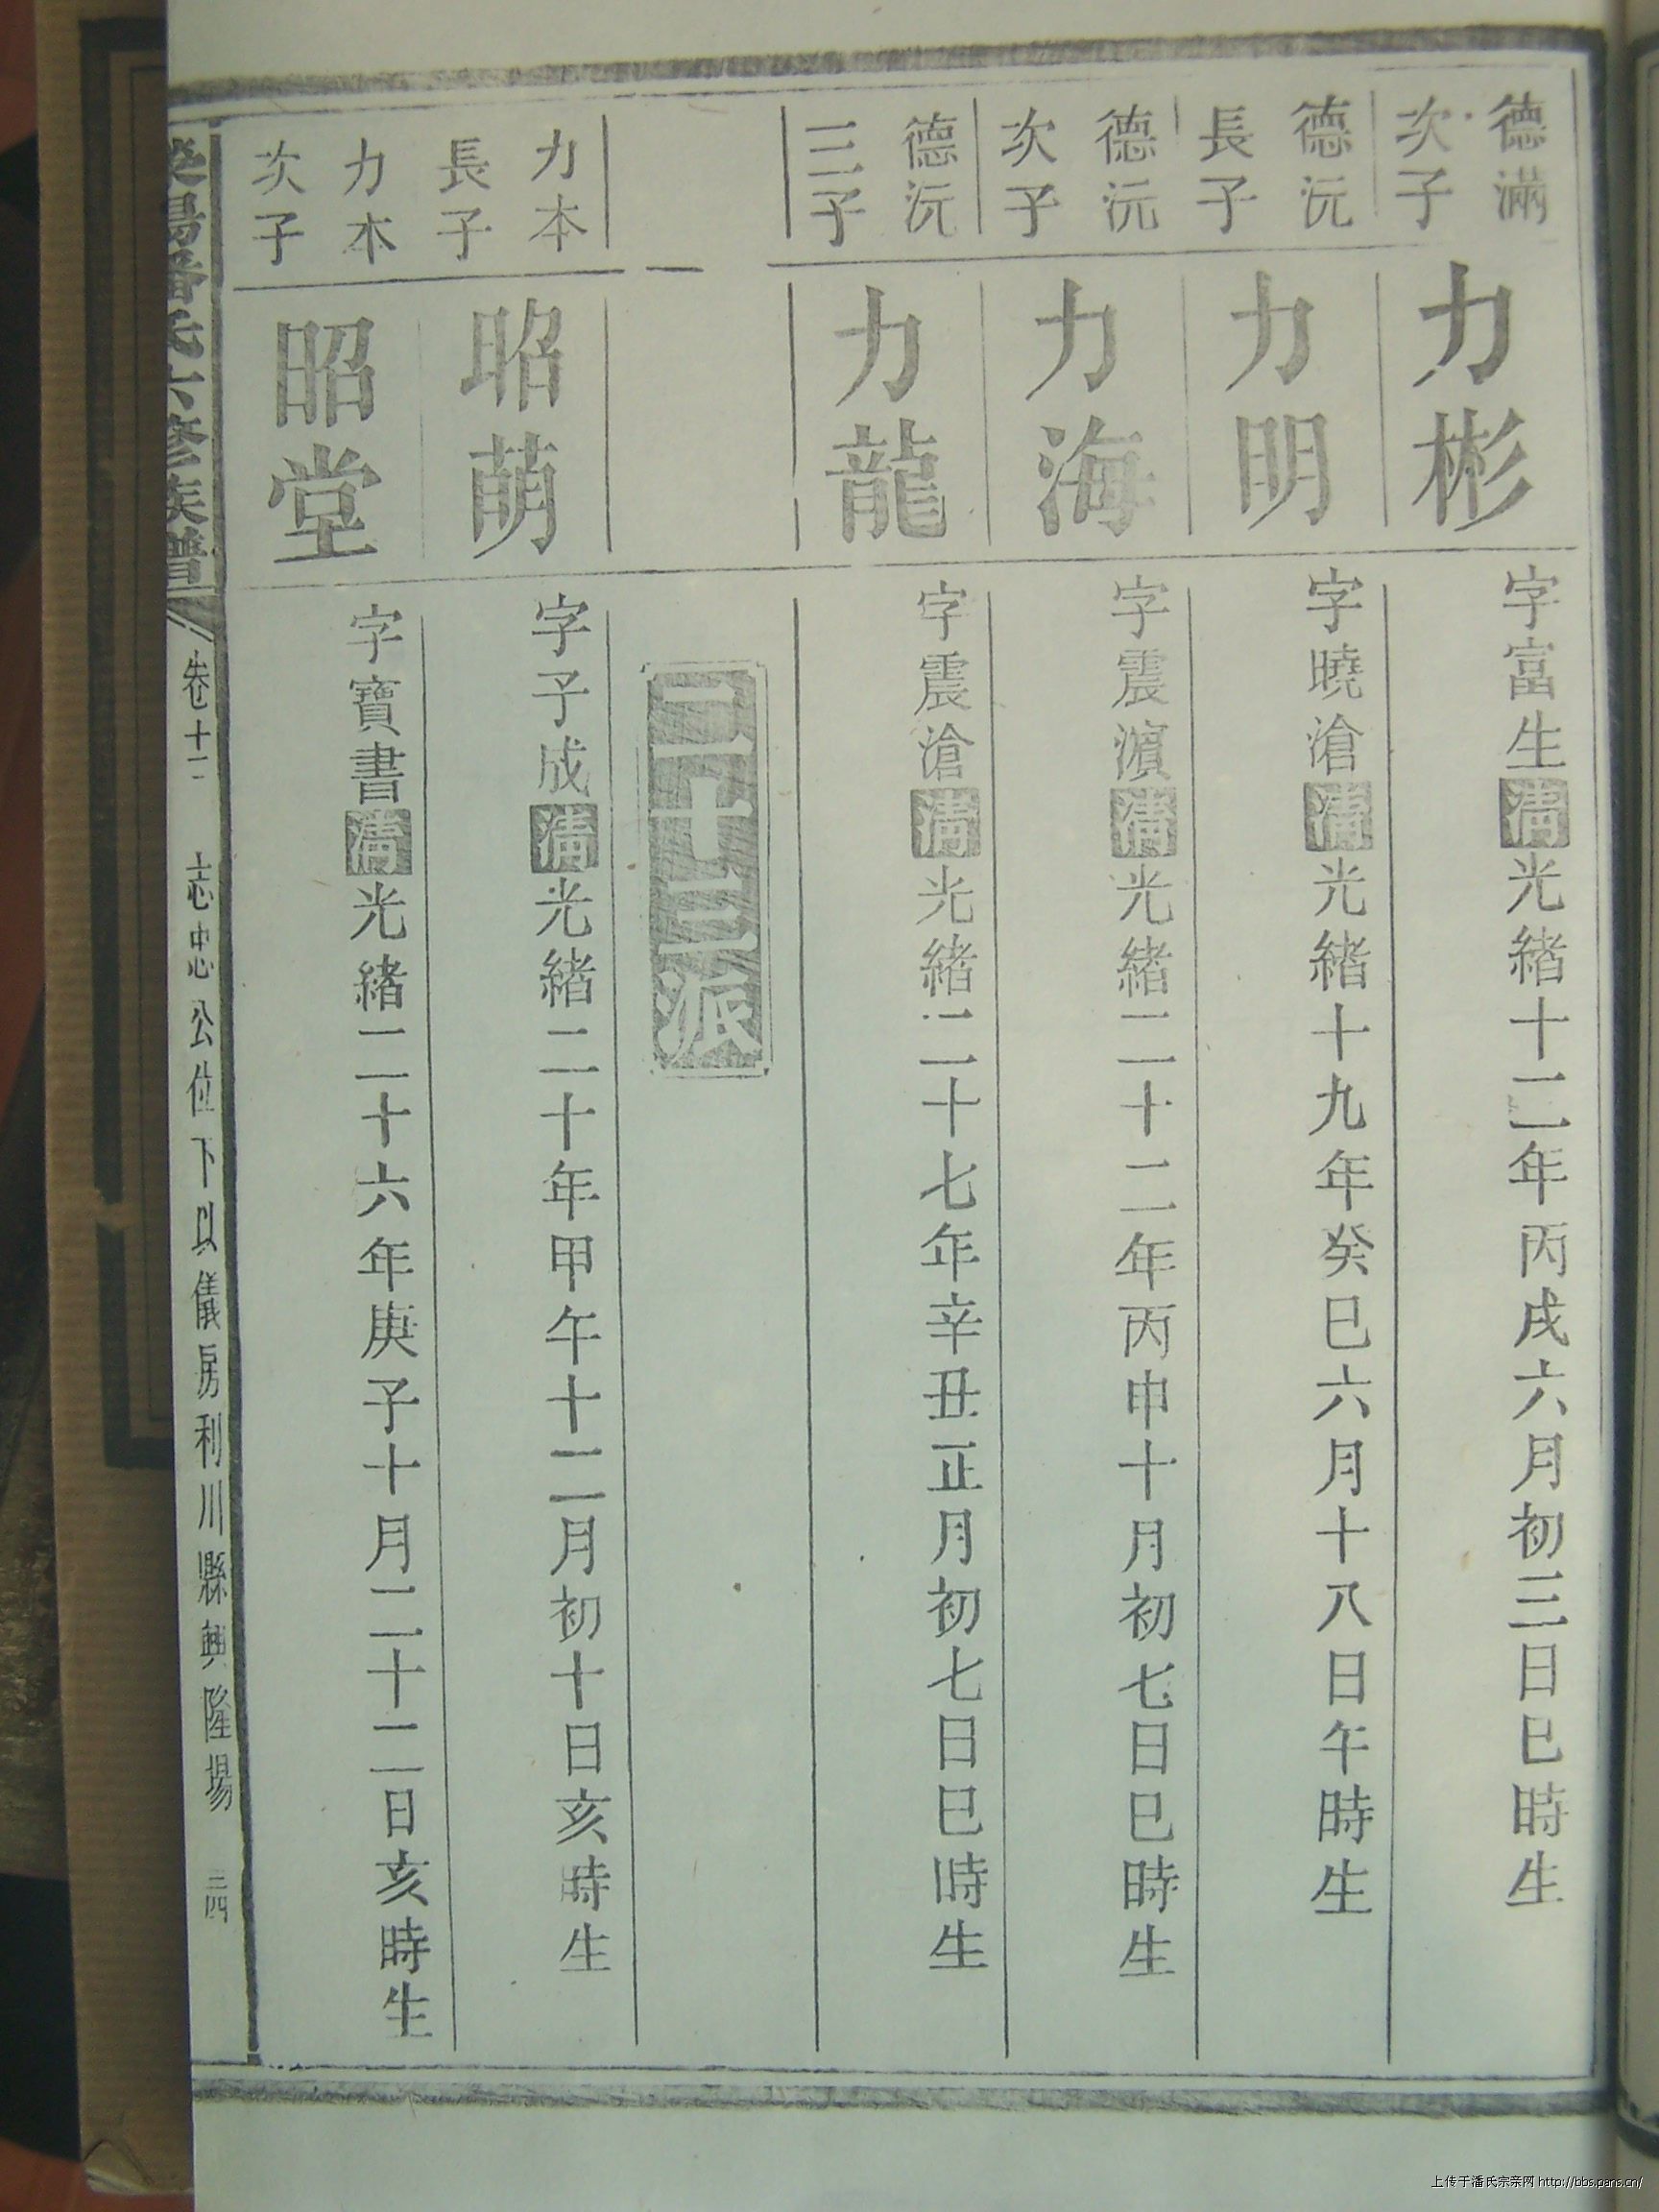 德滿
次子
力彬
字富生清光緒十二年丙戌六月初三日巳時生
德沅
長子
力明
字曉滄清光緒十九年癸巳六月十八日午時生
德沅
次子
力海
字震濱清光緒二十二年丙申十月初七日巳時生
德沅
三子
力龍
字震滄清光緒二十七年辛丑正月初七日巳時生
二十三派
力本
長子
昭萌
字子成清光緒二十年甲午十二月初十日亥時生
力本
次子
昭堂
字寶書清光緒二十六年庚子十月二十二日亥時生
滎陽潘氏六修族譜
卷十二
志忠公位下以儀房利川縣興隆場
三四
上传于潘氏宗亲网 http://bbs.pans.cn/